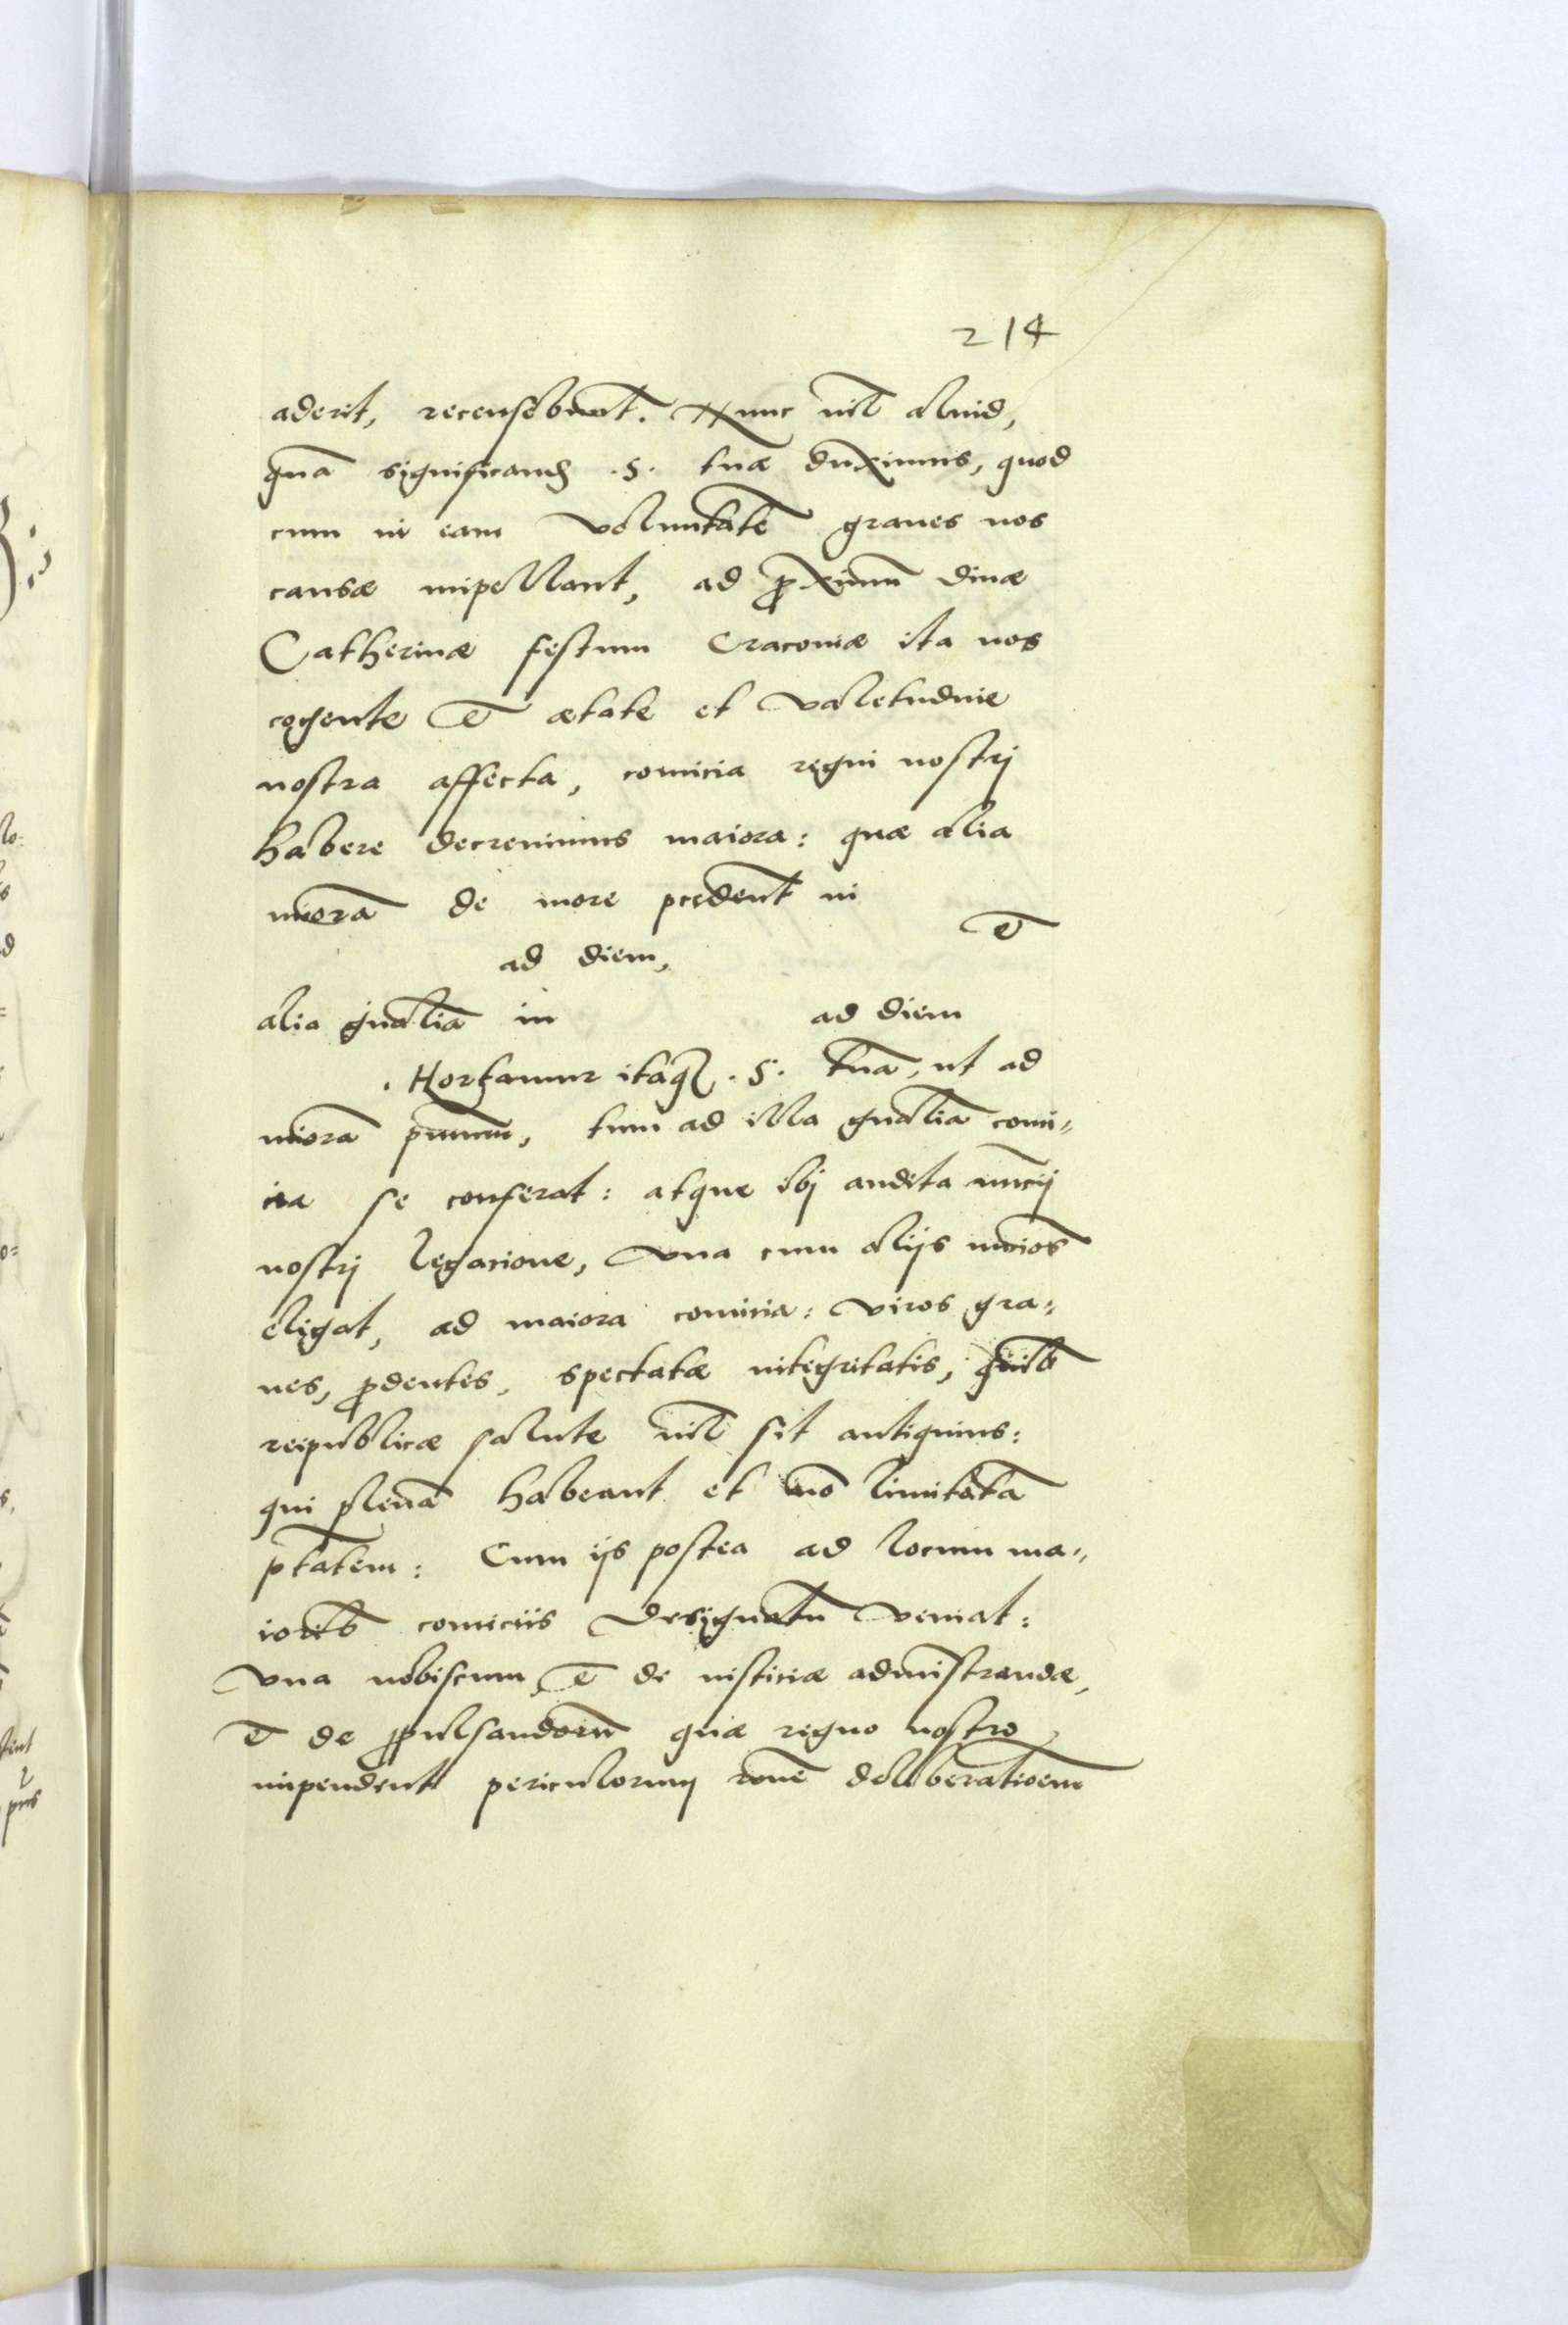 214
aderit, recensebunt. Nunc nil aliud,
quã significand .S. tuæ duximus, quod
cum in eam voluntatẽ graues nos
causæ impellant, ad proximũ diuæ
Catherinæ festum Cracouiæ ita nos
cogente et ætate et valetudine
nostra affecta, comicia regni nostrj
habere decreuimus maiora: quæ alia
minora de more p̃cedent in
ad diem, et
alia gñalia in ad diem
. Hortamur itaq .S. tuã, ut ad
minora primum, tum ad illa gñalia comi„
cia se conferat: atque ibj audita nuncij
nostrj legacione, vna cum alijs nuncios
eligat, ad maiora comicia: viros gra„
ues, prudentes, spectatæ integritatis, quib
reipublicæ salute nil sit antiquius:
qui plenã habeant et nõ limitatã
p̃tatem: Cum ijs postea ad locum ma„
iorib comiciis designatũ veniat:
vna nobiscum et de iusticiæ administrandæ,
et de propulsandorũ quæ regno nostro
impendent periculorum rõne deliberatioẽm